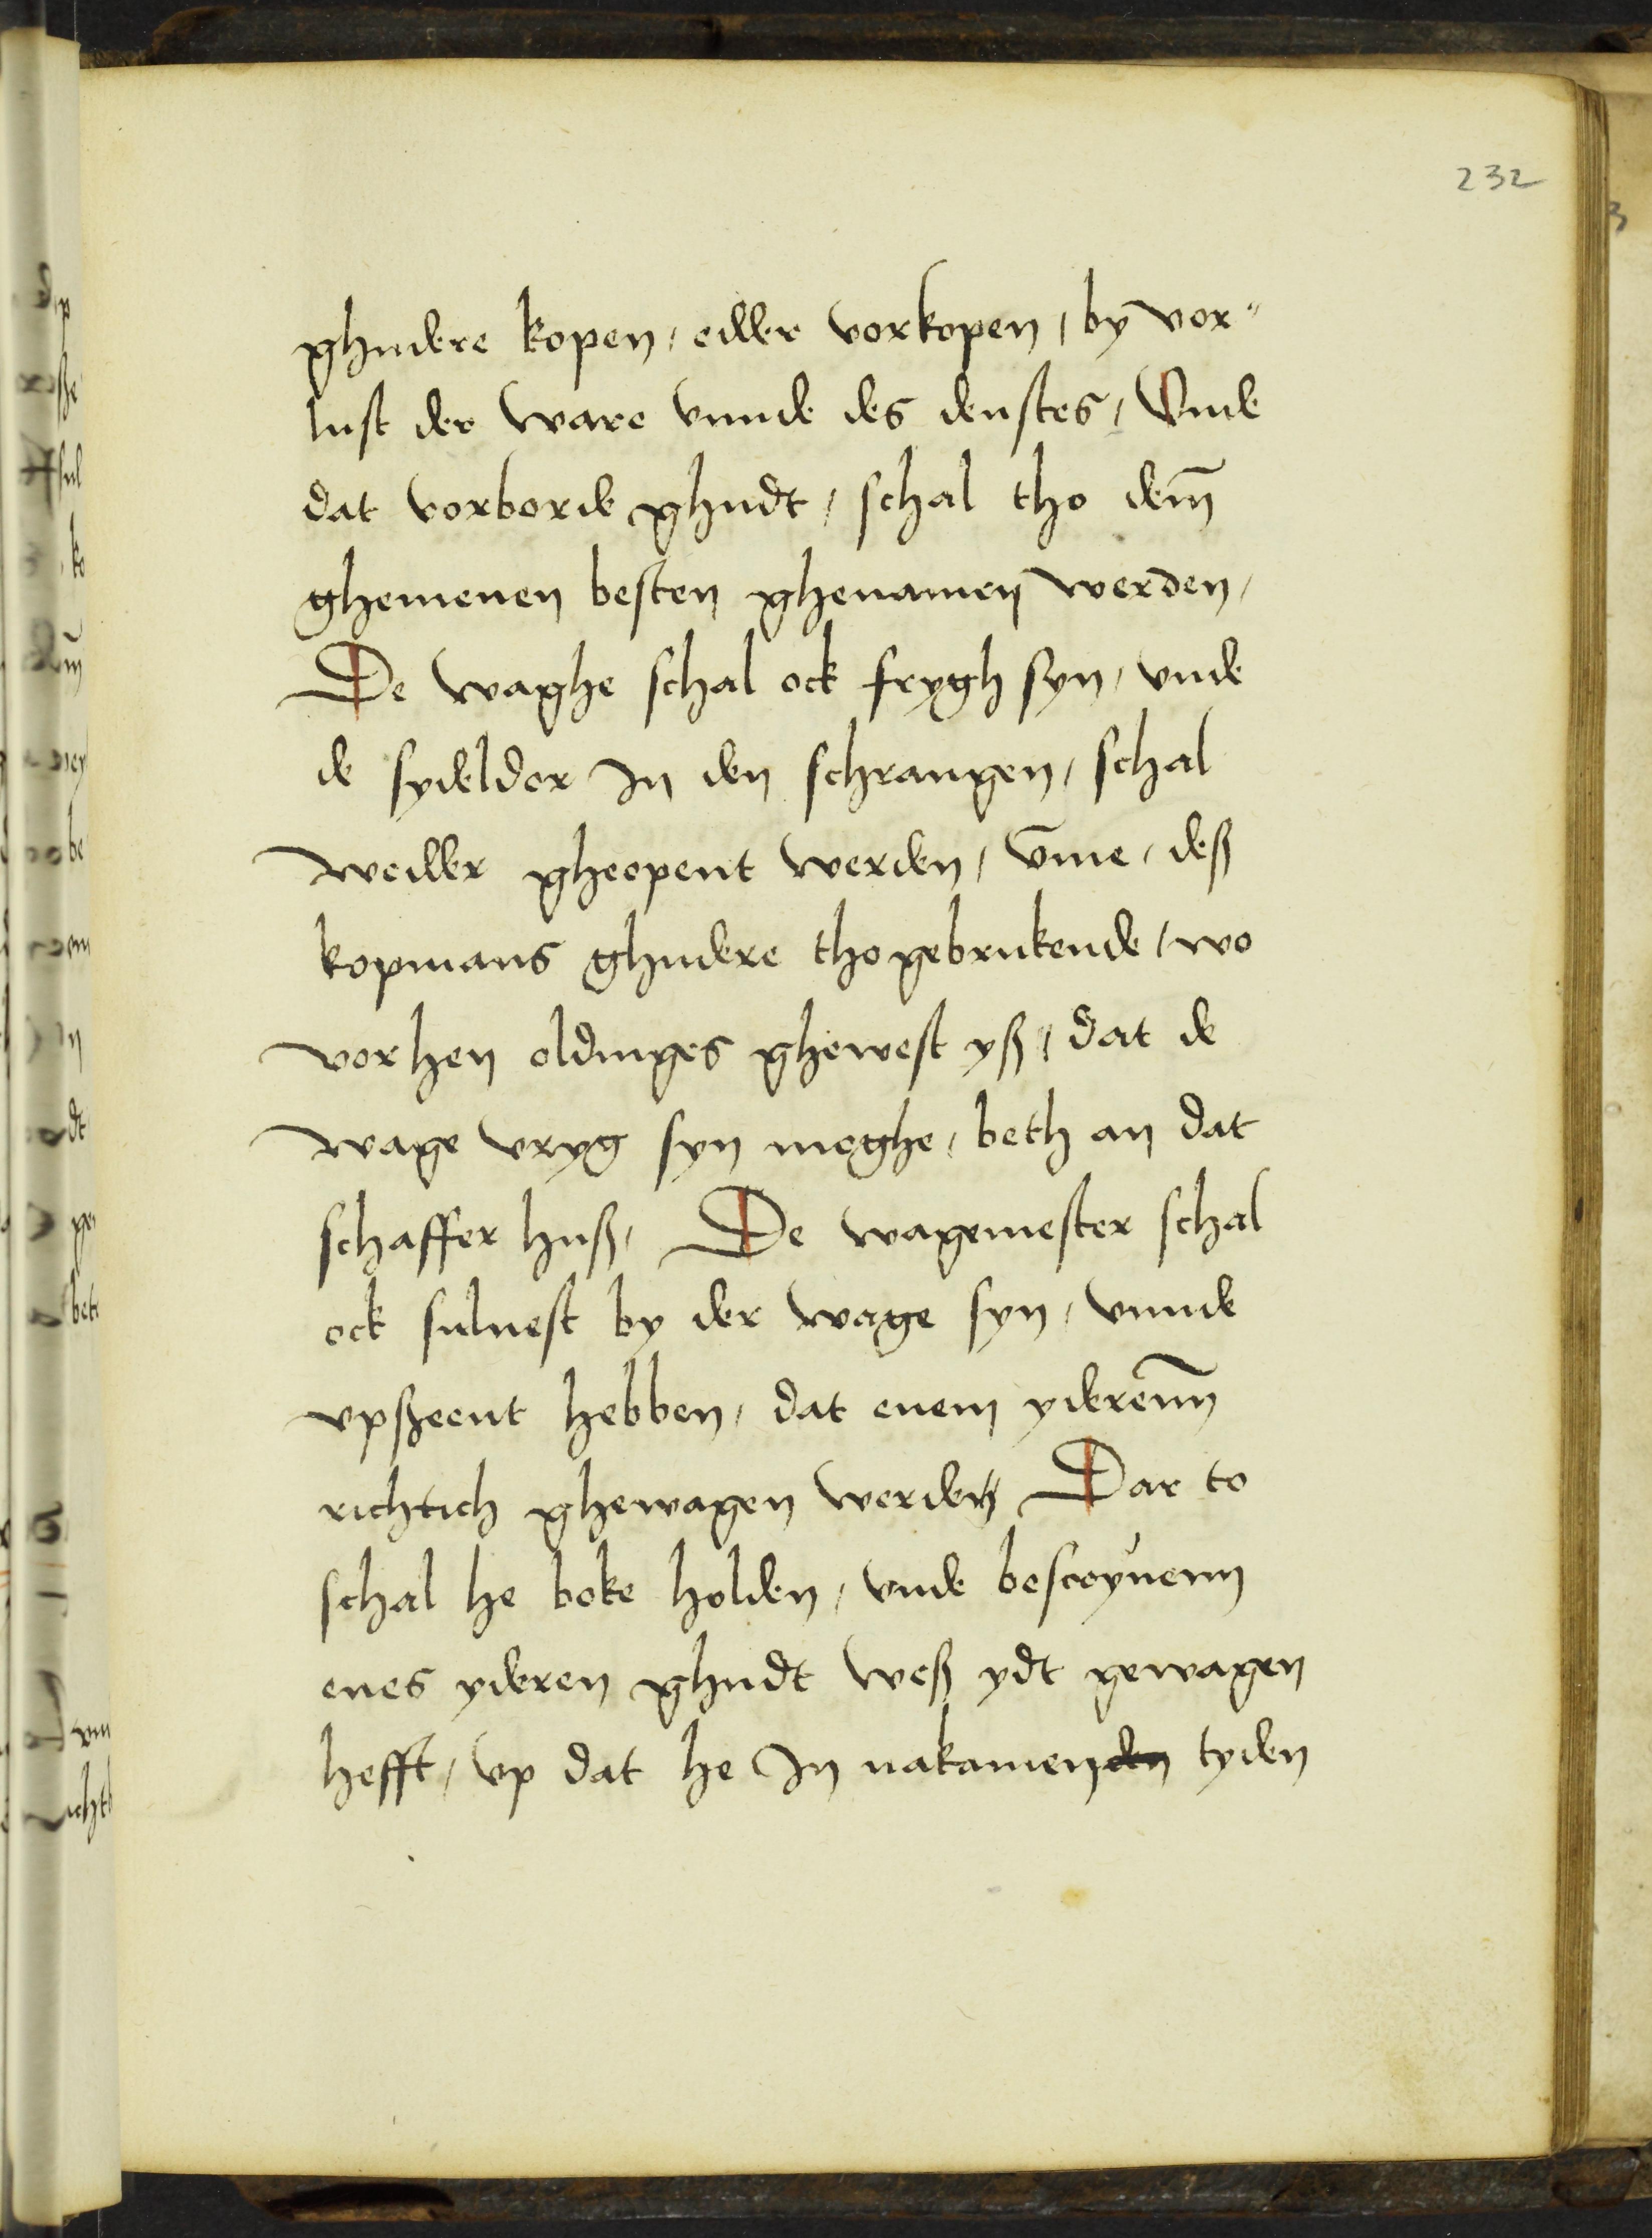 232
ghudere kopen, edder vorkopen, by vor-
lust der ware vnnde des denstes, Vnde
dat vorborde ghudt, schal tho dem̄
ghemenen besten ghenamen werden,
De waghe schal ock frygh syn, vnde
de sydeldor In den schrangen, schal
wedder gheopent werden, v̄me, deß
kopmans ghudere tho gebrukende, wo
vorhen oldinges ghewest yß, dat de
wage vryg syn moghe, beth an dat
schaffer huß, De wagemester schal
ock suluest by der wage syn, vnnde
vpßeent hebben, dat enem yderenn̄
richtich ghewagen werden, Dar to
schal he boke holden, vnde bescryuenn
enes yderen ghudt weß ydt gewagen
hefft, vp dat he In nakamenden tyden